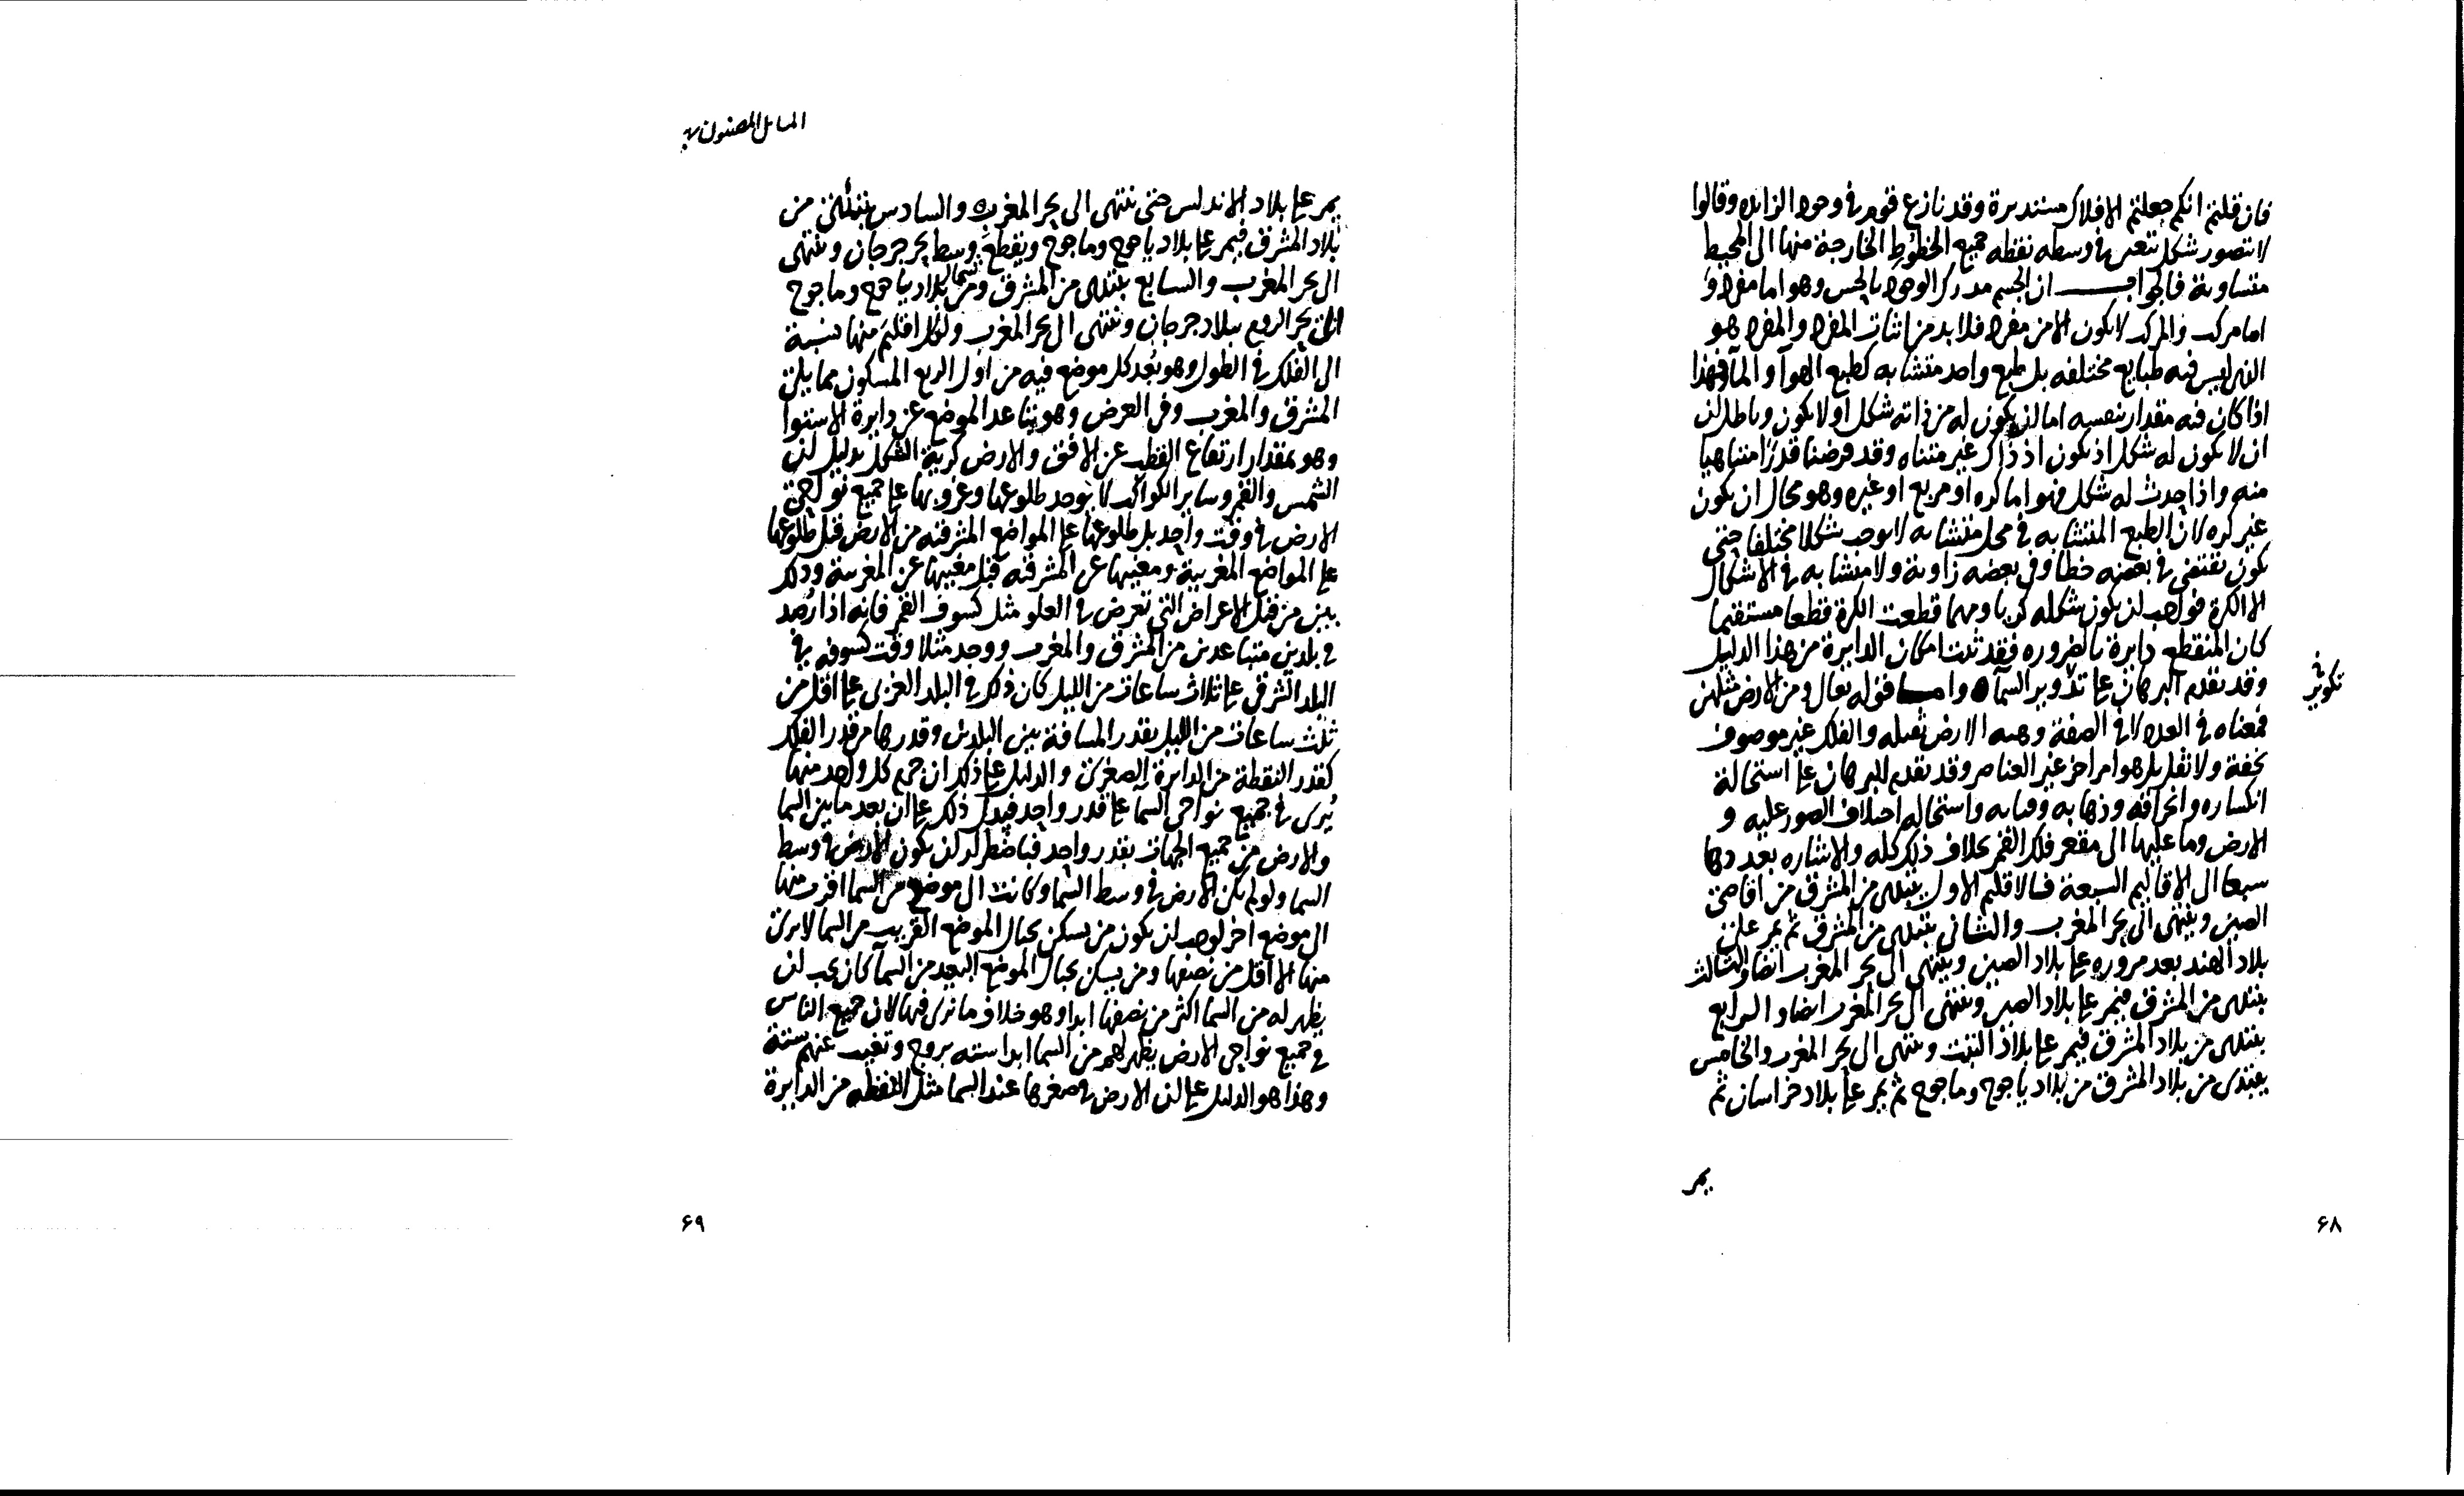 فان قلتم انكم جعلتم الافلاك مستديرة وقد نازع قوم في وجود الدايره وقالوا
لا نتصور شكل تتعين في وسطه نقطه جميع الخطوط الخارجة منها الى المحيط
متساوية فالجواب ان الجسم مدرك الوجود بالحس وهو اما مفرد و
اما مركب والمركب لا يكون الا من مفرد فلا بد من اثبات المفرد والمفرد هو
الذي ليس فيه طبايع مختلفه بل طبع واحد متشابه كطبع الهوآ والمآ فهذا
اذا كان فيه مقدار بنفسه اما ان يكون له من ذاته شكل او لا يكون وباطل
ان لا يكون له شكل اذ يكون اذ ذاك غير متناه وقد فرضنا قدرا متناهيا
منه واذا حدث له شكل فهو اما كره او مربع او غيره وهو محال ان يكون
غير كره لان الطبع المتشابه في محل متشابه لا يوجد شكلا مختلفا حتى
يكون تقتضي في بعضه خطا وفي بعضه زاوية ولا متشابه في الاشكال
الا الكرة فواجب ان يكون شكله كريا ومهما قطعت الكرة قطعا مستقيما
كان المنقطع دايرة بالضروره فقد ثبت امكان الدايرة من هذا الدليل
وقد تقدم البرهان على تدوير السمآ واما قوله تعالى ومن الارض مثلهن
تكوير
فمعناه في العدد لا في الصفة وهيه الارض ثقيله والفلك غير موصوف
بخفة ولا ثقل بل هو امر اخر غير العناصر وقد تقدم البرهان على استحالة
انكساره وانخراقه وذهابه وفنايه واستحاله اختلاف الصور عليه و
الارض وما عليها الى مقعر فلك القمر بخلاف ذلك كله والاشاره بعددها
سبعا الى الاقاليم السبعة فالاقليم الاول يبتدى من المشرق من اقاصى
الصين وينتهى الى بحر المغرب والثانى يبتدى من المشرق ثم يمر على
بلاد الهند بعد مروره على بلاد الصين وينتهى الى بحر المغرب ايضا والثالث
يبتدى من المشرق فيمر على بلاد الصين وينتهى الى بحر المغرب ايضا والرابع
يبتدى من بلاد المشرق فيمر على بلاد التبت وينتهى الى بحر المغرب والخامس
يبتدى من بلاد المشرق من بلاد ياجوج وماجوج ثم يمر على بلاد خراسان ثم
يمر
۶۸
المسائل المضنون بها
يمر على بلاد الاندلس حتى ينتهى الى بحر المغرب والسادس يبتدئ من
بلاد المشرق فيمر على بلاد ياجوج وماجوج ويقطع وسط بحر جرجان وينتهى
الى بحر المغرب والسابع يبتدى من المشرق ومن شمال بلاد ياجوج وماجوج
الى بحر الروم ببلاد جرجان وينتهى الى بحر المغرب ولكل اقليم منها نسبة
الى الفلك في الطول وهو بعد كل موضع فيه من اول الربع المسكون مما يلى
المشرق والمغرب وفي العرض وهو تباعد الموضع عن دايرة الاستوا
وهو بمقدار ارتفاع القطب عن الافق والارض كرية الشكل بدليل ان
الشمس والقمر وساير الكواكب لا يوجد طلوعها وغروبها على جميع نواحى
الارض في وقت واحد بل طلوعها على المواضع المشرقيه من الارض قبل طلوعها
على المواضع المغربية ومغيبها عن المشرقيه قبل مغيبها عن المغربية وذلك
يبين من قبل الاعراض التي تعرض في العلو مثل كسوف القمر فانه اذا رصد
في بلدين متباعدين من المشرق والمغرب ووجد مثلا وقت كسوفه في
البلد الشرقى على ثلاث ساعات من الليل كان ذلك في البلد الغربى على اقل من
ثلث ساعات من الليل بقدر المسافة بين البلدين وقدرها من قدر الفلك
كقدر النقطة من الدايرة الصغرى والدليل على ذلك ان جرم كل واحد منها
يُرى في جميع نواحى السمآ على قدر واحد فيدل ذلك على ان بعد ما بين السما
والارض من جميع الجهات بقدر واحد فباضطرار ان يكون الارض في وسط
السما ولو لم تكن الارض في وسط السما وكانت الى موضع من السما اقرب منها
الى موضع اخر لوجب ان يكون من يسكن بحيال الموضع القريب من السما لا يرى
منها الا اقل من نصفها ومن يسكن بحيال الموضع البعيد من السمآ كان يجب ان
يظهر له من السما اكثر من نصفها ابدا وهو خلاف ما نرى فيها لان جميع الناس
في جميع نواحى الارض يظهر لهم من السما ابدا سته بروج وتغيب عنهم ستة
وهذا هو الدليل على ان الارض في صغرها عند السما مثل النقطه من الدايرة
۶۹